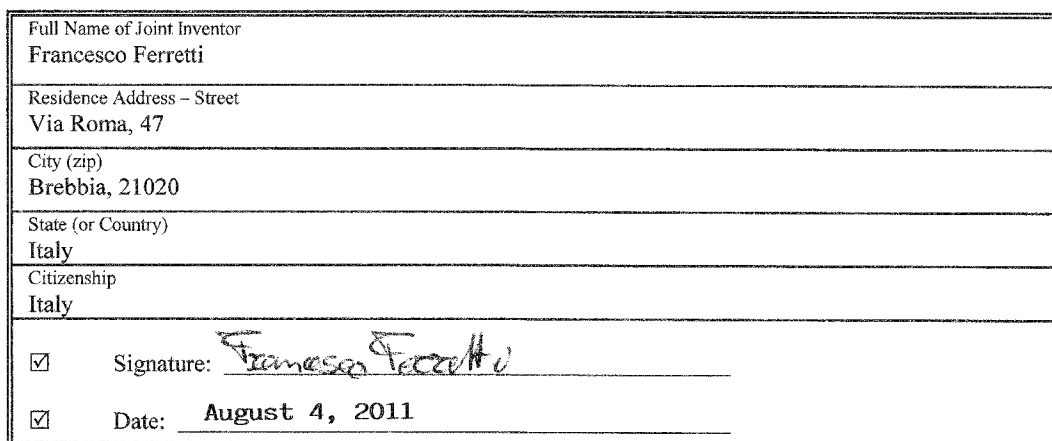 Full Name of Joint Inventor
Francesco Ferretti
Residence Address – Street
Via Roma, 47
City (zip)
Brebbia, 21020
State (or Country)
Italy
Citizenship
Italy
☑ Signature: Francesco Ferretti
☑ Date: August 4, 2011